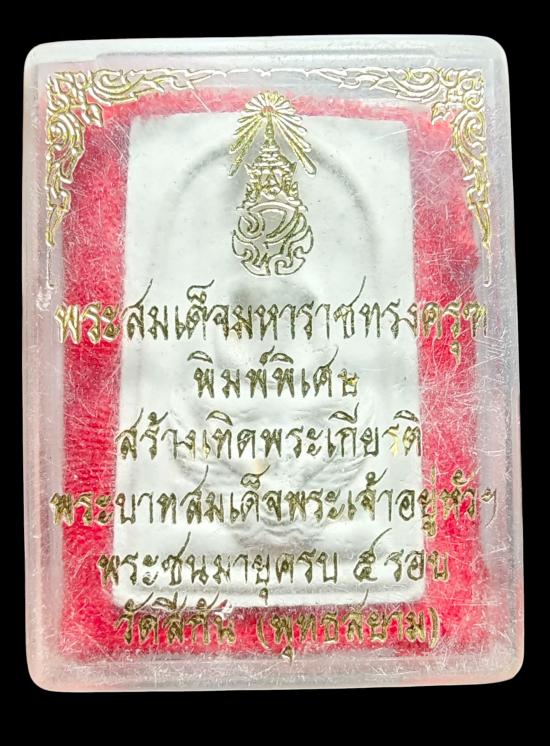 พระสมเด็จมหาราชทรงครุฑ
พิมพ์พิเศษ
สร้างเทิดพระเกียรติ
พระบาทสมเด็จพระเจ้าอยู่หัวฯ
พระชนมายุครบ ๕ รอบ
วัดสีกัน (พุทธสยาม)